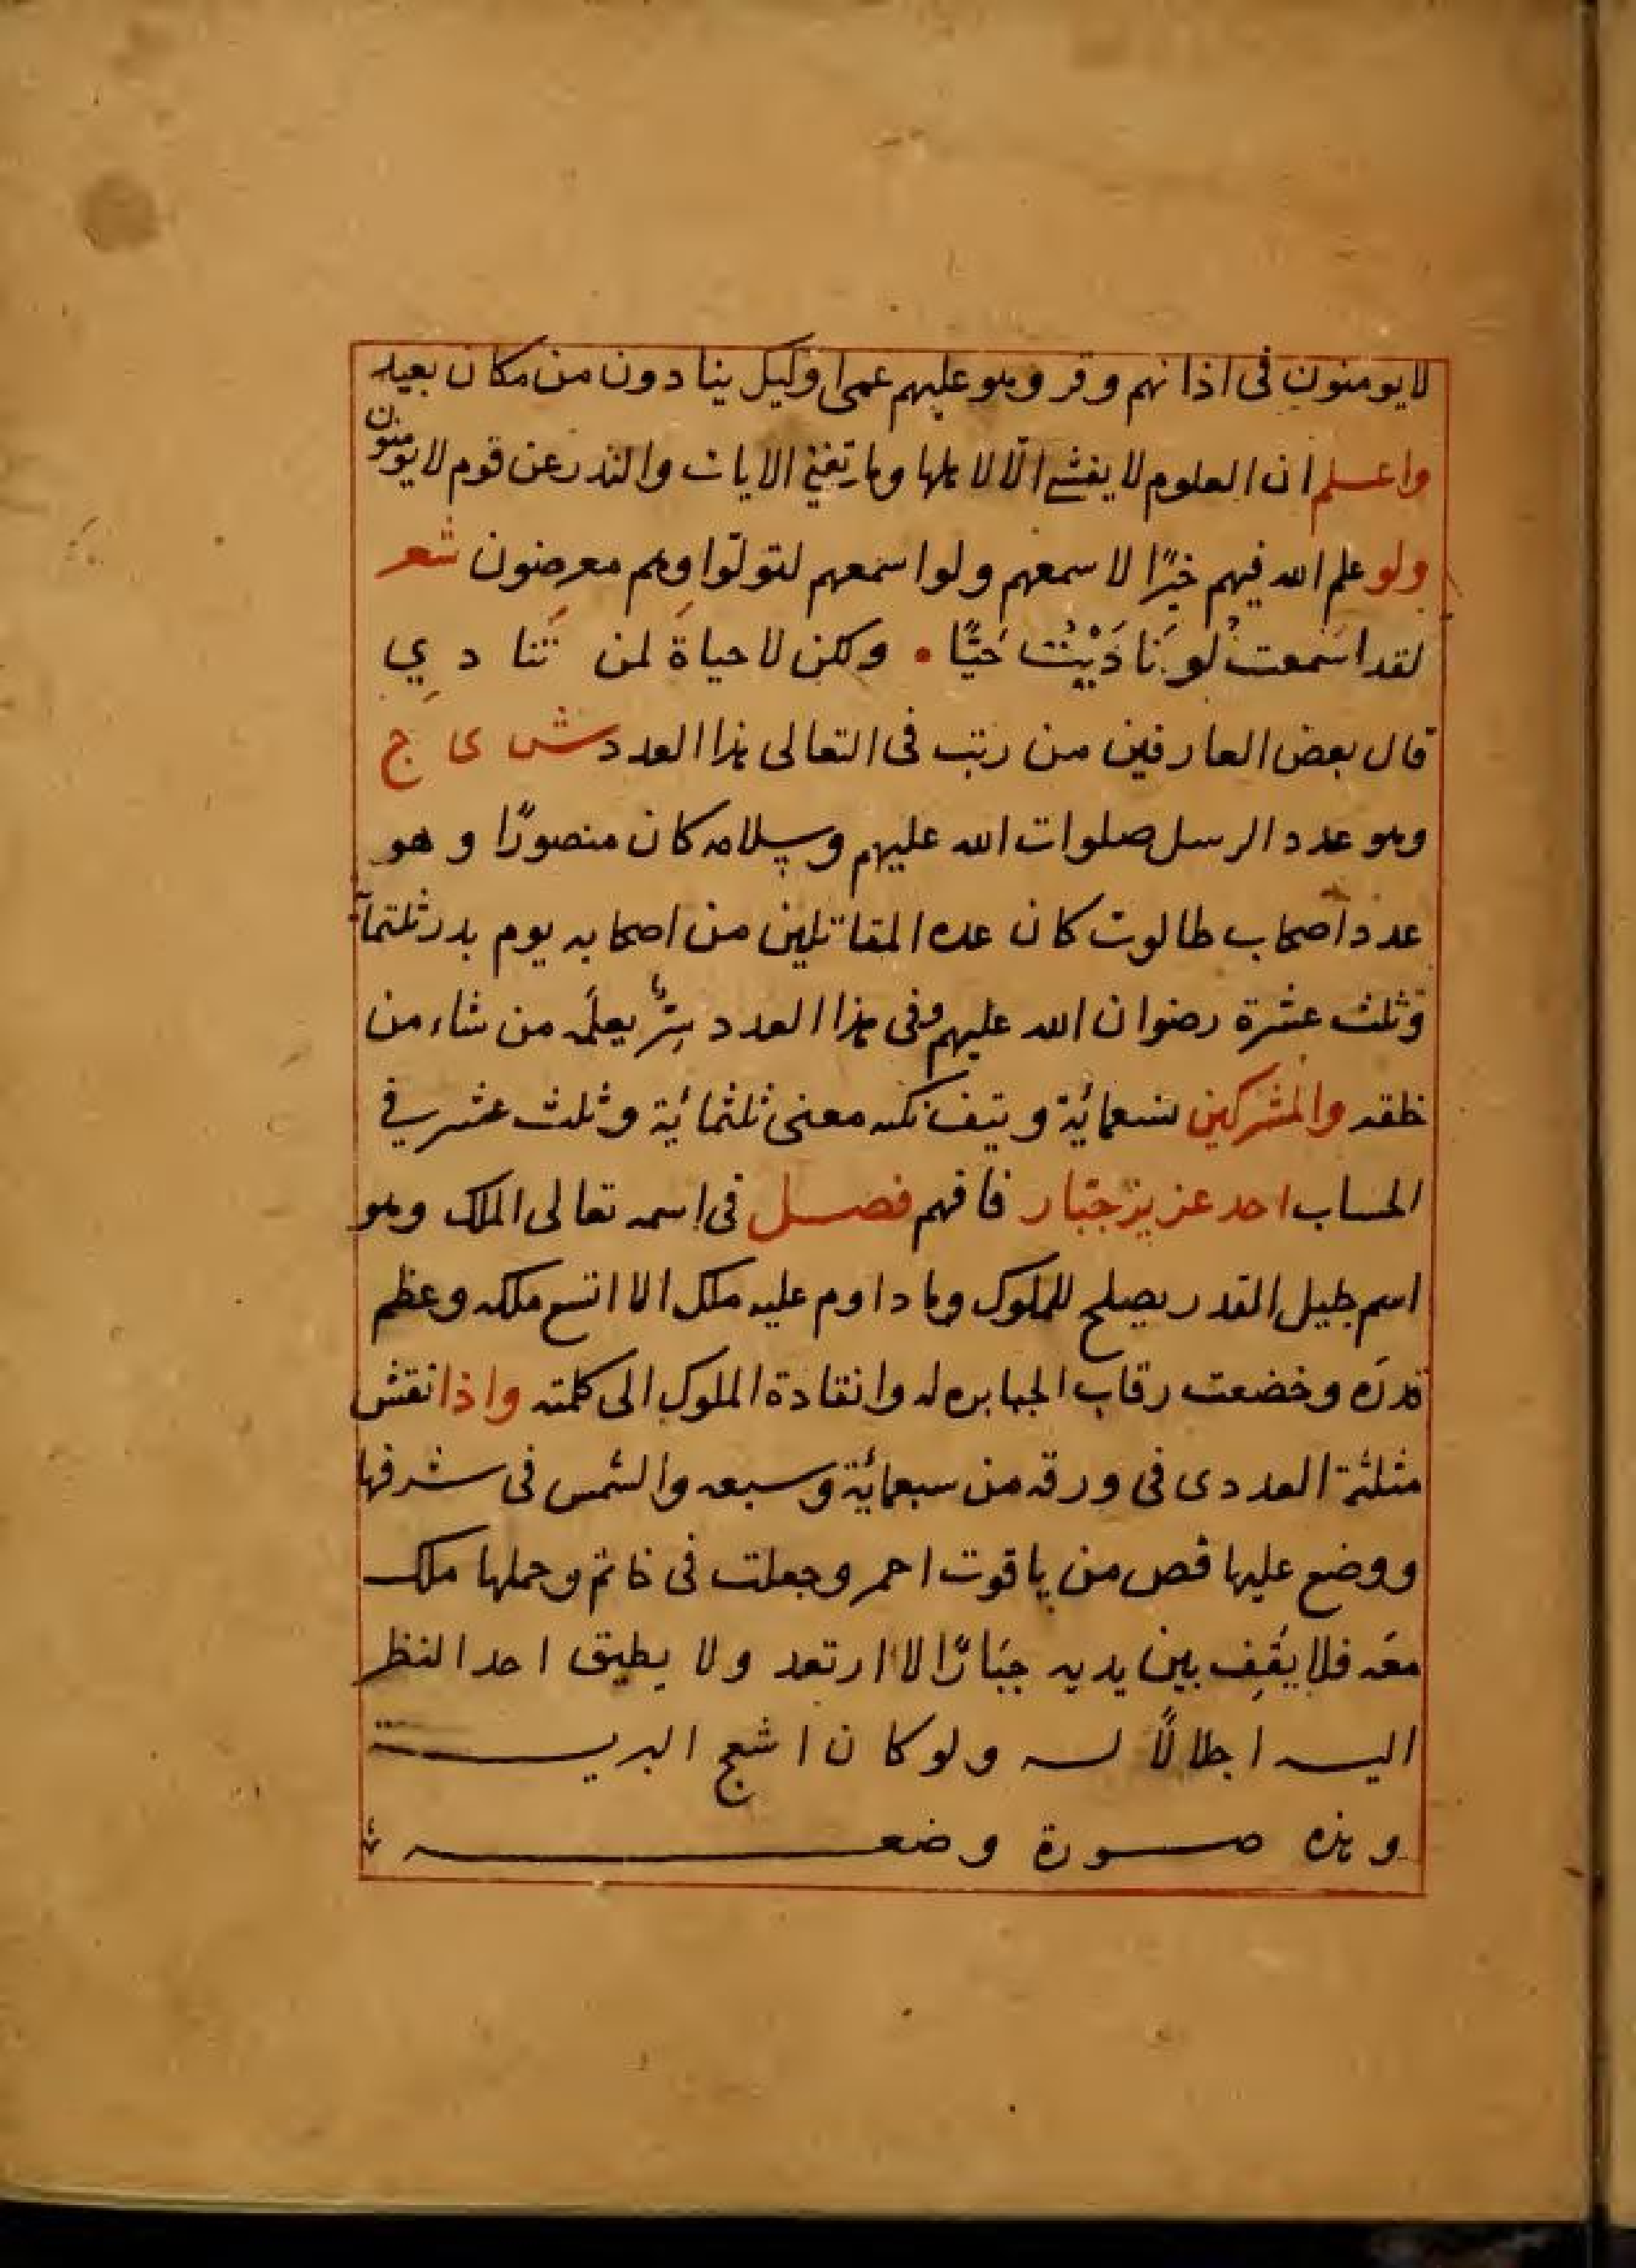 لا يومنون فى اذانهم وقر وهو عليهم عمى اوليك ينادون من مكان بعيد
واعلم ان العلوم لا يفشى الّا لاهلها وما تغنى الايات والنذر عن قوم لا يومنون
ولو علم الله فيهم خيرًا لاسمعهم ولو اسمعهم لتولّوا وهم معرضون شعر
لقد اسمعت لو نَادَيْتَ حَيًّا • ولكن لا حياة لمن تنادي
قال بعض العارفين من رتب فى التعالى هذا العدد ش ى ج
وهو عدد الرسل صلوات الله عليهم وسلامه كان منصورًا وهو
عدد اصحاب طالوت كان عده المقاتلين من اصحابه يوم بدر ثلثمآئة
وثلث عشرة رضوان الله عليهم وفى هذا العدد سِرٌّ يعلمه من شاء من
خلقه والمشركين تسعمائة ونيف نكته معنى ثلثمائة وثلث عشر في
الحساب احد عزيز جبّار فافهم فصل فى اسمه تعالى الملك وهو
اسم جليل القدر يصلح للملوك وما داوم عليه ملك الا اتسع ملكه وعظم
قدرَه وخضعت رقاب الجبابره له وانقادة الملوك الى كلمته واذا نقش
مثلثة العددى فى ورقه من سبعمائة وسبعه والشمس فى شرفها
ووضع عليها فص من ياقوت احمر وجعلت فى خاتم وحملها ملك
معَه فلا يقف بين يديه جبّارًا الا ارتعد ولا يطيق احد النظر
اليه اجلالًا له ولو كان اشجع البرية
وهذه صورة وضعه